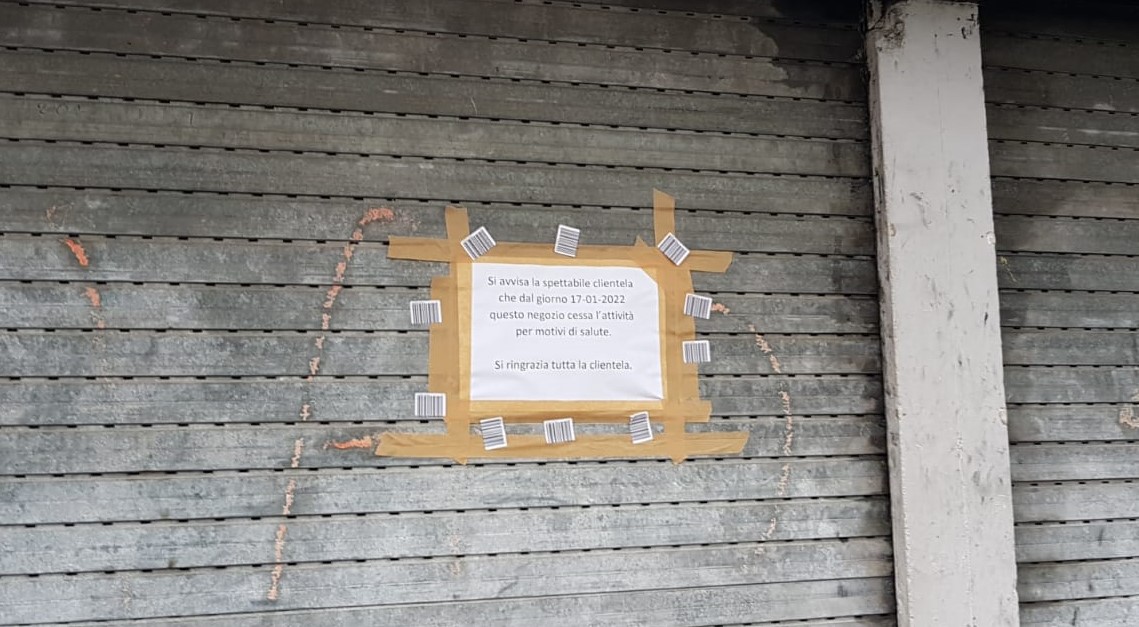 Si avvisa la spettabile clientela
che dal giorno 17-01-2022
questo negozio cessa l'attività
per motivi di salute.
Si ringrazia tutta la clientela.